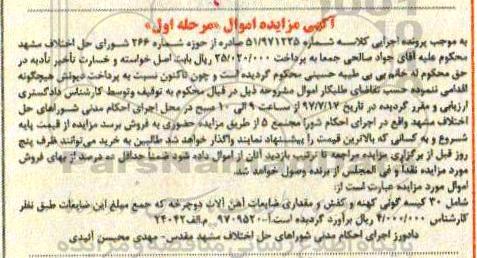 آگهی مزایده اموال «مرحله اول»
به موجب پرونده اجرایی کلاسه شماره ۵۱/۹۷۱۲۲۵ صادره از حوزه شماره ۲۶۶ شورای حل اختلاف مشهد
محکوم علیه آقای جواد صالحی جمعا به پرداخت ۲۵/۰۲۰/۰۰۰ ریال بابت اصل خواسته و خسارت تأخیر تأدیه در
حق محکوم له خانم بی بی طیبه حسینی محکوم گردیده است و چون تاکنون نسبت به پرداخت دیونش هیچگونه
اقدامی ننموده حسب تقاضای طلبکار اموال مشروحه ذیل در قبال محکوم به توقیف وتوسط کارشناس دادگستری
ارزیابی و مقرر گردیده در تاریخ ۹۷/۷/۱۷ از ساعت ۹ الی ۱۰ صبح در محل اجرای احکام مدنی شوراهای حل
اختلاف مشهد واقع در اجرای احکام شورا مجتمع ۵ از طریق مزایده حضوری به فروش برسد مزایده از قیمت پایه
شروع و به کسانی که بالاترین قیمت را پیشنهاد نمایند واگذار خواهد شد طالبین به خرید می‌توانند ظرف پنج
روز قبل از برگزاری مزایده مراجعه تا ترتیب بازدید آنان از اموال داده شود ضمناً حداقل ده درصد از بهای فروش
مورد مزایده نقداً و فی المجلس از برنده وصول خواهد شد.
اموال مورد مزایده عبارت است از:
شامل ۳۰ کیسه گونی کهنه و کفش و مقداری ضایعات آهن آلات دوچرخه که جمع مبلغ این ضایعات طبق نظر
کارشناس ۴/۰۰۰/۰۰۰ ریال برآورد گردیده است.آ-۹۷۰۹۵۲۰ م.الف۲۴۰۴۲
دادورز اجرای احکام مدنی شوراهای حل اختلاف مشهد مقدس- مهدی محیسن ائیدی